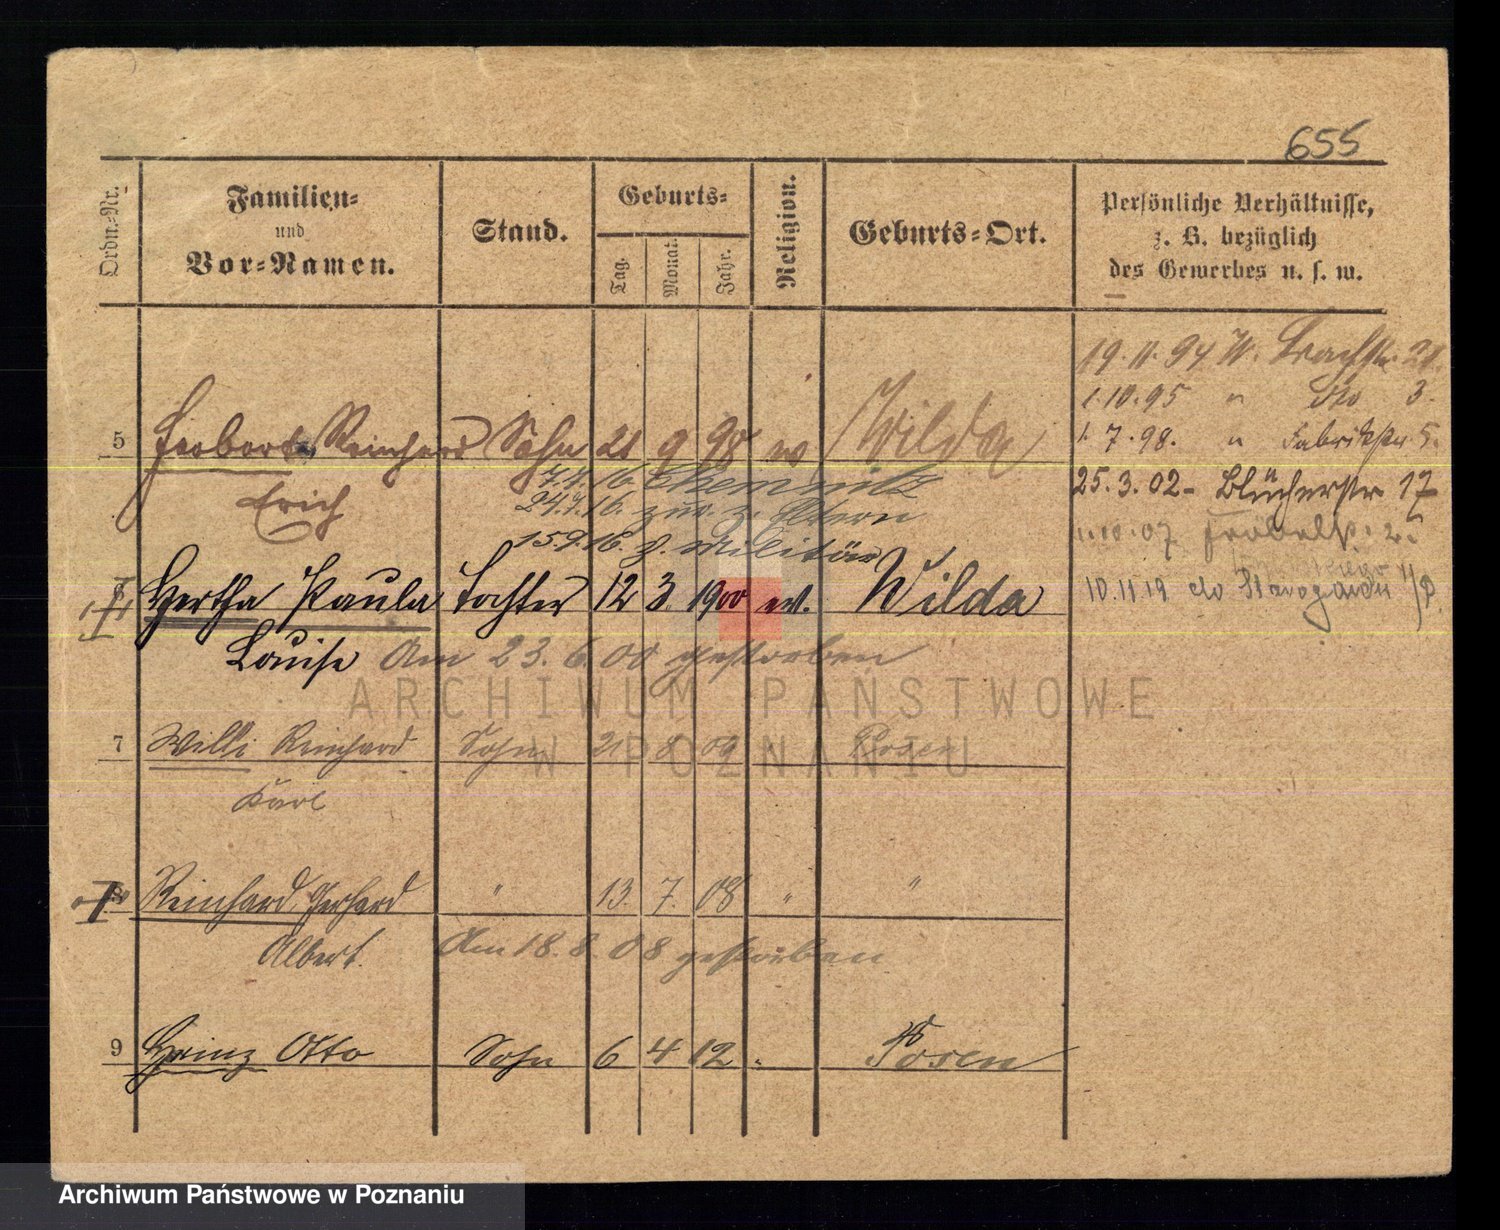 655
Ordn.-Nr.
Familien-
und
Vor-Namen.
Stand.
Geburts-
Tag.
Monat.
Jahr.
Religion.
Geburts-Ort.
Persönliche Verhältnisse,
z. B. bezüglich
des Gewerbes u. s. w.
19.11.94 W. 21
1.10.95 " dto 3.
1.7.98. " Fabrikstr. 5.
25.3.02 - Blücherstr 17
1.10.07
10.11.19
5 Herbert Reinhard Sohn 21 9 98 ev Wilda
Erich
7.7.16. Chemnitz
24.7.16. zur. z. Eltern
15.9.16. z. Militär
Hertha Paula Tochter 12 3. 1900 ev. Wilda
Louise Am 23.6.00 gestorben
7 Willi Reinhard Sohn 21 8 09 Posen
Karl
Reinhard Gerhard " 13. 7. 08 " "
Albert. Am 18.8.08 gestorben
9 Heinz Otto Sohn 6 4 12 Posen
ARCHIWUM PAŃSTWOWE
W POZNANIU
Archiwum Państwowe w Poznaniu